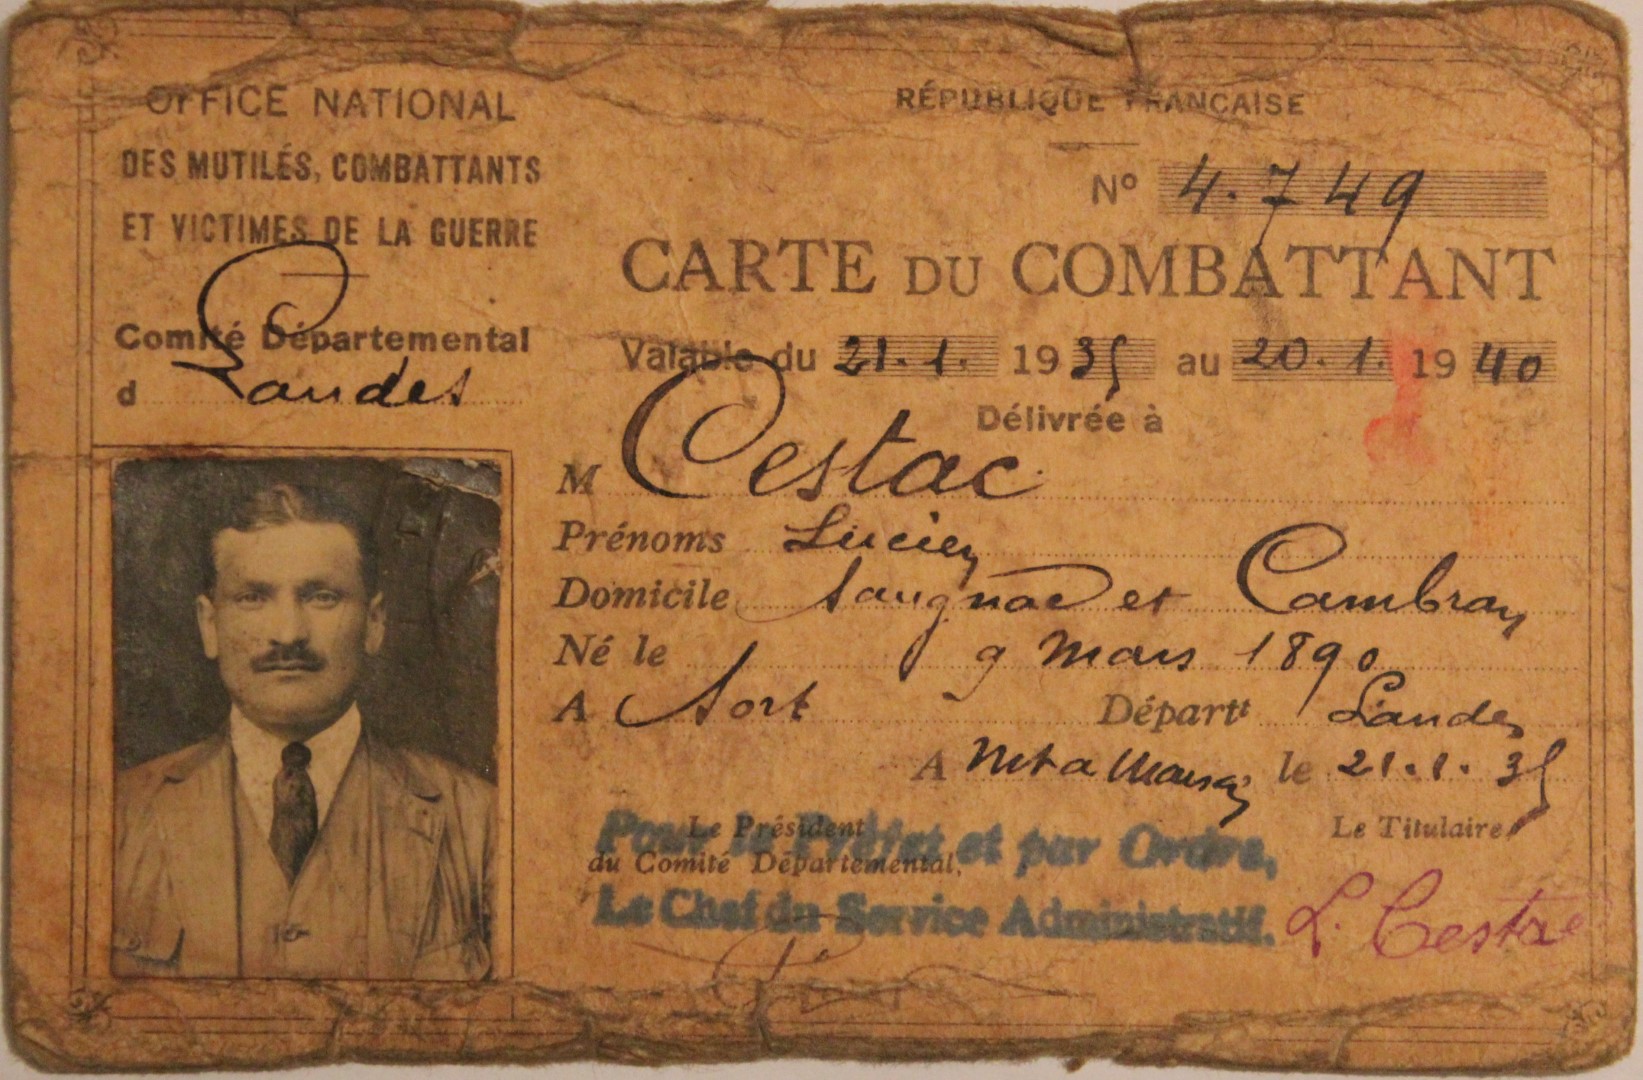 OFFICE NATIONAL
DES MUTILÉS, COMBATTANTS
ET VICTIMES DE LA GUERRE
Comité Départemental
d Landes
RÉPUBLIQUE FRANÇAISE
Nº 4.749
CARTE DU COMBATTANT
Valable du 21.1. 1935 au 20.1. 1940
Délivrée à
M Cestac
Prénoms Lucien
Domicile Saugnac et Cambran
Né le 9 Mars 1890
A Sort Départt Landes
A Mt de Marsan le 21.1.35
Le Président
du Comité Départemental,
Le Titulaire
Pour le Préfet et par Ordre,
Le Chef du Service Administratif.
L. Cestac